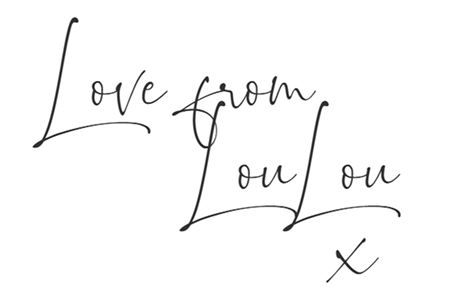 Love from
LouLou
x